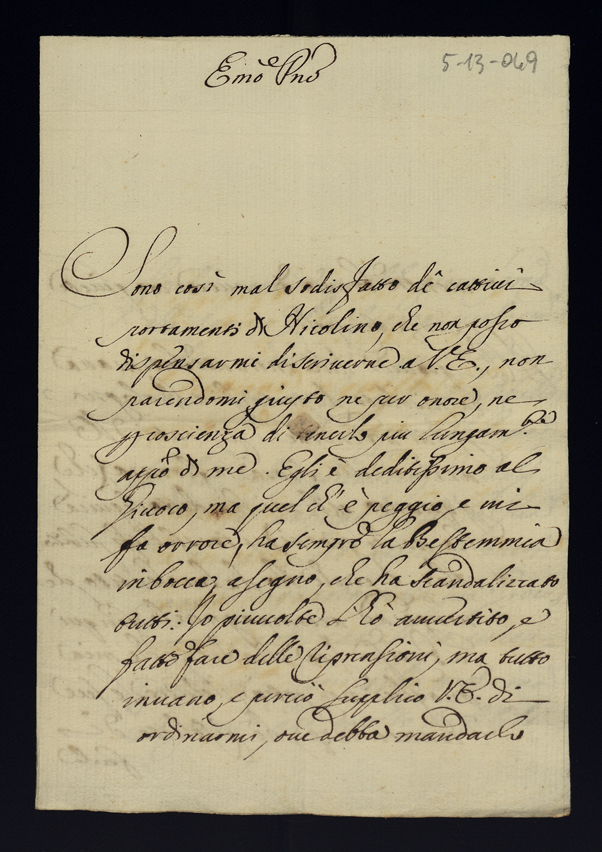 5-13-049
Emõ Pnẽ
Sono così mal sodisfatto de cattivi
portamenti di Nicolino, che non posso
dispensarmi di scriverne a V.E., non
parendomi giusto ne per onore, ne
p coscienza di tenerlo piu lungam.te
app.o di me. Egli è deditissimo al
Giuoco, ma quel ch'è peggio, e mi
fa orrore, ha sempre la Bestemmia
in bocca, a segno, che ha scandalizzato
tutti. Io piu volte l'hò avvertito, e
fatto fare delle riprensioni, ma tutto
invano, e perciò supplico V.E. di
ordinarmi, ove debba mandarlo